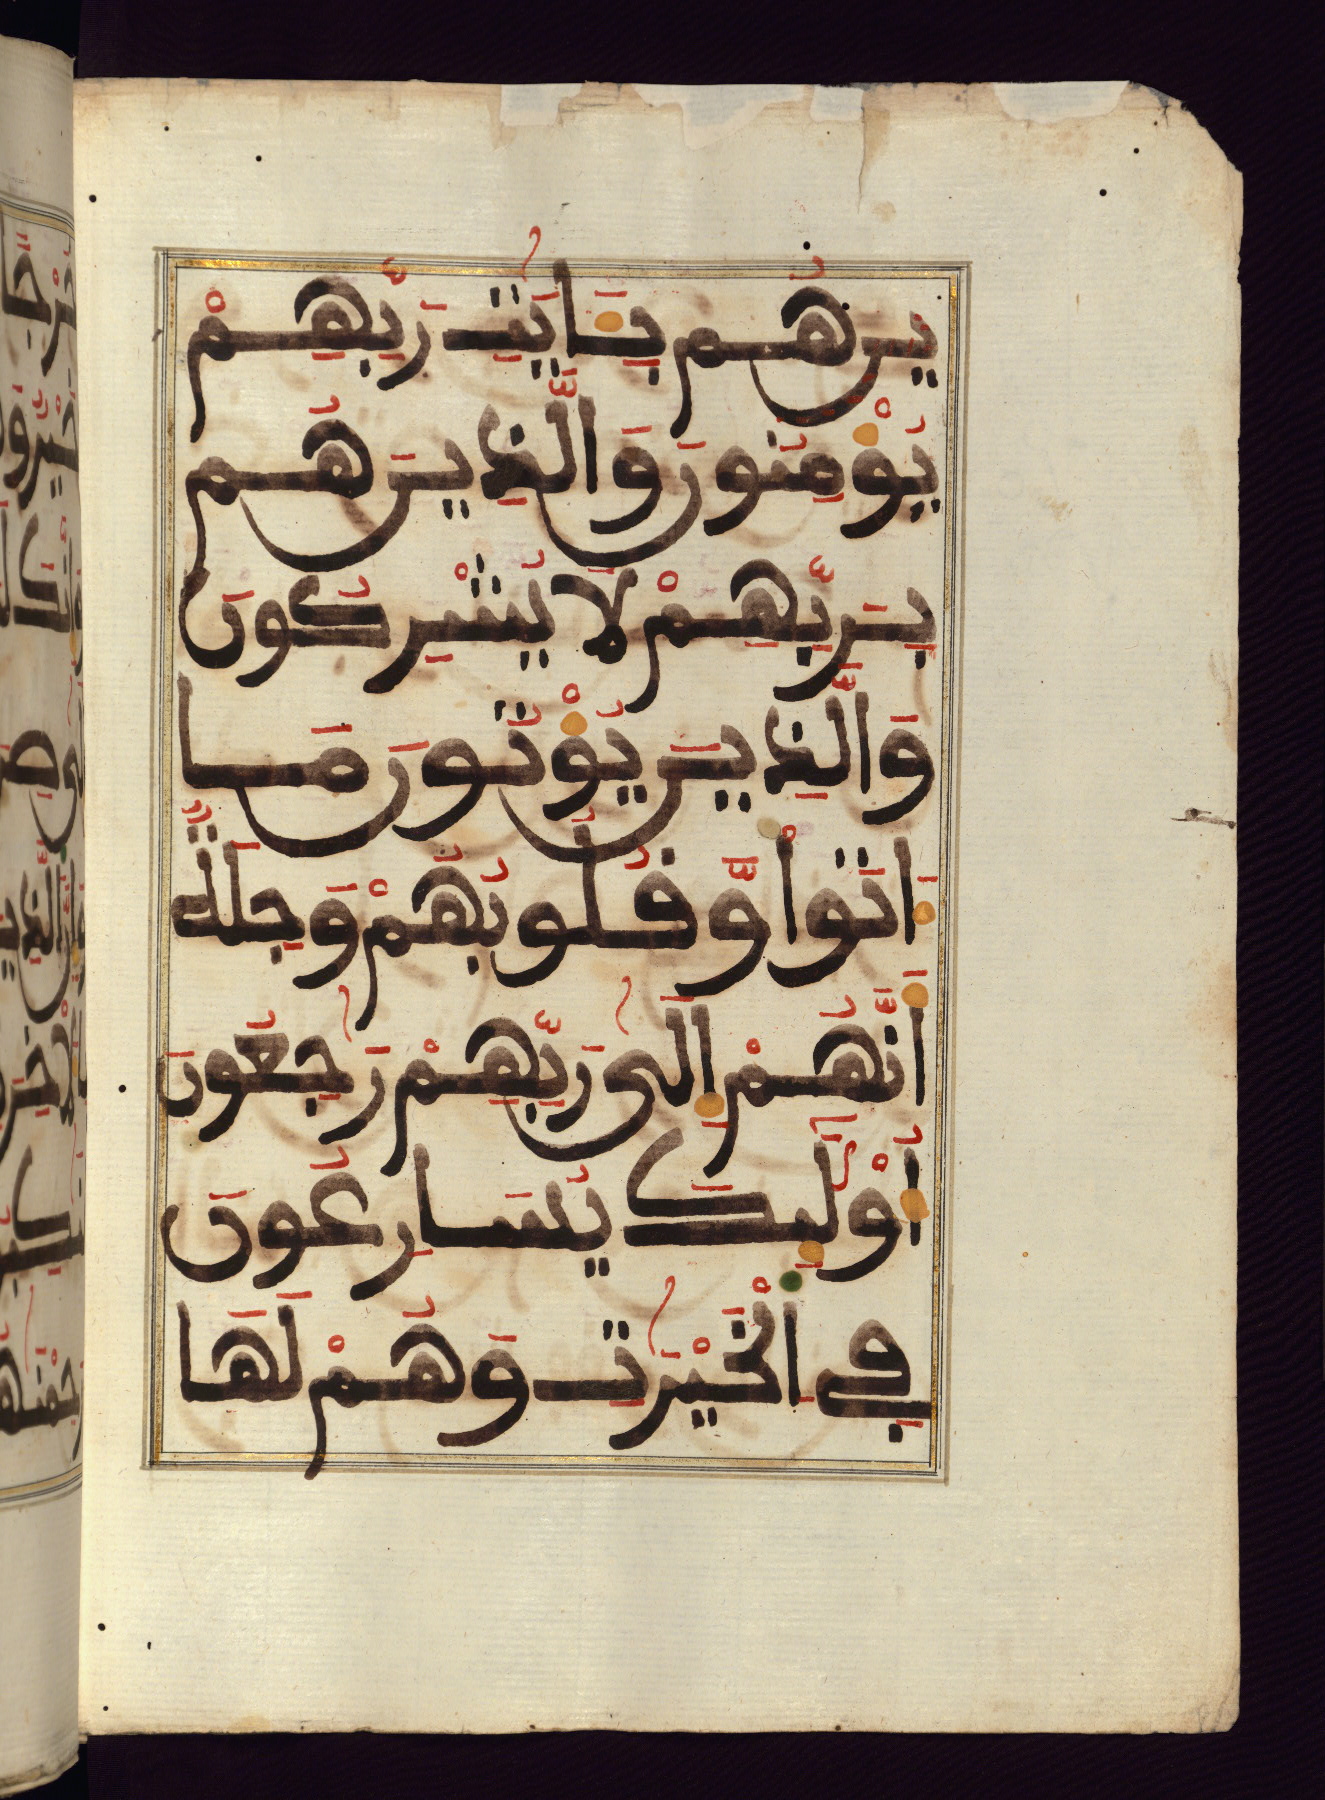 ين هُم بِـَٔايَٰتِ رَبِّهِمْ
يُؤْمِنُونَ وَالَّذِينَ هُم
بِرَبِّهِمْ لَا يُشْرِكُونَ
وَالَّذِينَ يُؤْتُونَ مَا
ءَاتَوا وَّقُلُوبُهُمْ وَجِلَةٌ
أَنَّهُمْ إِلَىٰ رَبِّهِمْ رَٰجِعُونَ
أُوْلَٰئِكَ يُسَارِعُونَ
فِي الْخَيْرَٰتِ وَهُمْ لَهَا